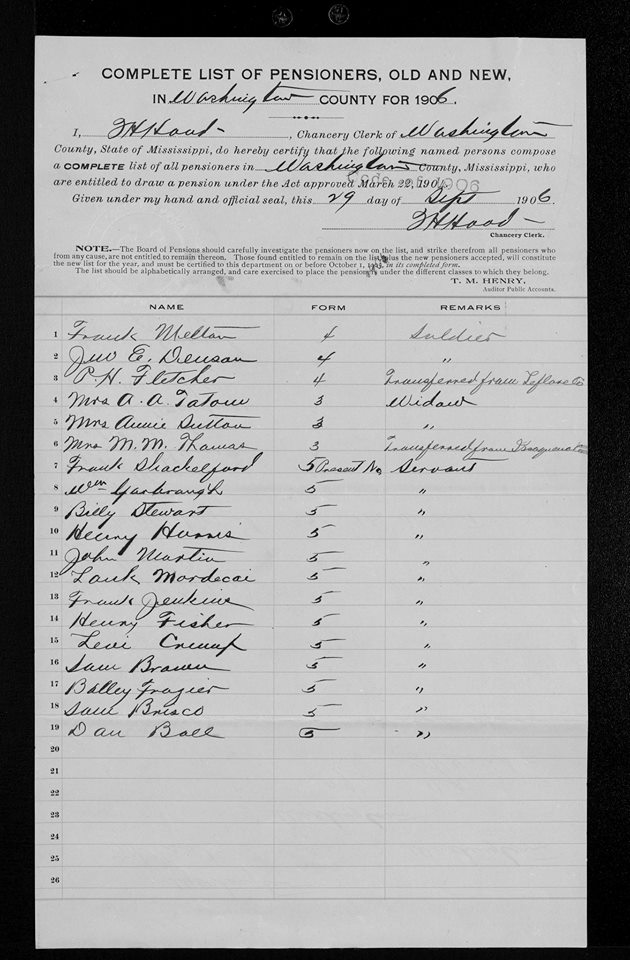 COMPLETE LIST OF PENSIONERS, OLD AND NEW,
IN Washington COUNTY FOR 1906.
I, T H Hood, Chancery Clerk of Washington
County, State of Mississippi, do hereby certify that the following named persons compose
a COMPLETE list of all pensioners in Washington County, Mississippi, who
are entitled to draw a pension under the Act approved March 22, 190
Given under my hand and official seal, this 29 day of Sept 1906.
T H Hood
Chancery Clerk.
NOTE.—The Board of Pensions should carefully investigate the pensioners now on the list, and strike therefrom all pensioners who
from any cause, are not entitled to remain thereon. Those found entitled to remain on the list, plus the new pensioners accepted, will constitute
the new list for the year, and must be certified to this department on or before October 1, in its completed form.
The list should be alphabetically arranged, and care exercised to place the pensioners under the different classes to which they belong.
T. M. HENRY,
Auditor Public Accounts.
NAME FORM REMARKS
1 Frank Melton 4 Soldier
2 Jno E. Denson 4 "
3 P. H. Fletcher 4 Transferred from Leflore Co
4 Mrs A. A. Tatom 3 Widow
5 Mrs Annie Sutton 3 "
6 Mrs M. M. Thomas 3 Transferred from Issaquena
7 Frank Shackelford 5 Present No. Servant
8 Wm Yarbrough 5 "
9 Billy Stewart 5 "
10 Henry Harris 5 "
11 John Martin 5 "
12 Lank Mordecai 5 "
13 Frank Jenkins 5 "
14 Henry Fisher 5 "
15 Levi Crump 5 "
16 Sam Brown 5 "
17 Batley Frazier 5 "
18 Sam Brisco 5 "
19 Dan Ball 5 "
20
21
22
23
24
25
26